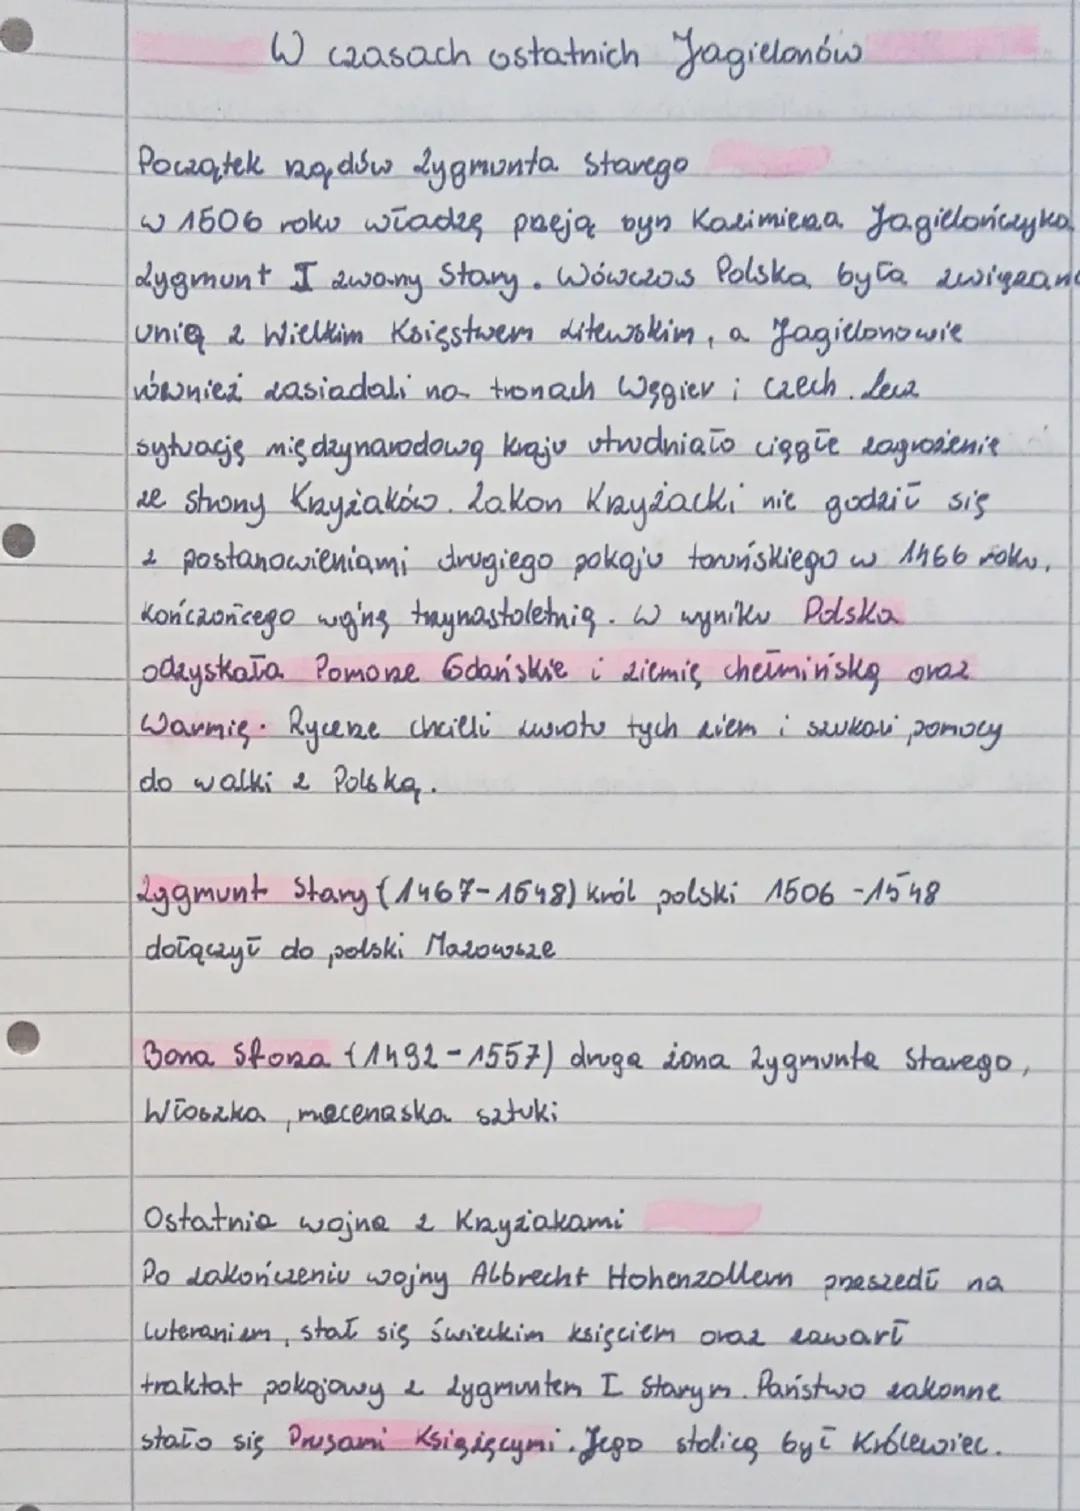 W czasach ostatnich Jagielonów
Początek rządów Zygmunta Starego
w 1506 roku władzę przeją syn Kazimierza Jagielończyka,
Zygmunt I zwany Stary. Wówczas Polska była związana
unią z Wielkim Księstwem Litewskim, a Jagielonowie
również zasiadali na tronach Węgier i Czech. Lecz
sytuację międzynarodową kraju utrudniało ciągłe zagrożenie
ze strony Krzyżaków. Zakon Krzyżacki nie godził się
z postanowieniami drugiego pokoju toruńskiego w 1466 roku,
kończońcego wojnę trzynastoletnią. W wyniku Polska
odzyskała Pomorze Gdańskie i ziemię chełmińską oraz
Warmię. Rycerze chcieli zwrotu tych ziem i szukali pomocy
do walki z Polską.
Zygmunt Stary (1467-1548) król polski 1506 -1548
dołączył do polski Mazowsze
Bona Sforza (1492-1557) druga żona Zygmunta Starego,
Włoszka, mecenaska sztuki
Ostatnia wojna z Krzyżakami
Po zakończeniu wojny Albrecht Hohenzollern przeszedł na
luteranizm, stał się świeckim księciem oraz zawarł
traktat pokojowy z Zygmuntem I Starym. Państwo zakonne
stało się Prusami Książęcymi. Jego stolicą był Królewiec.